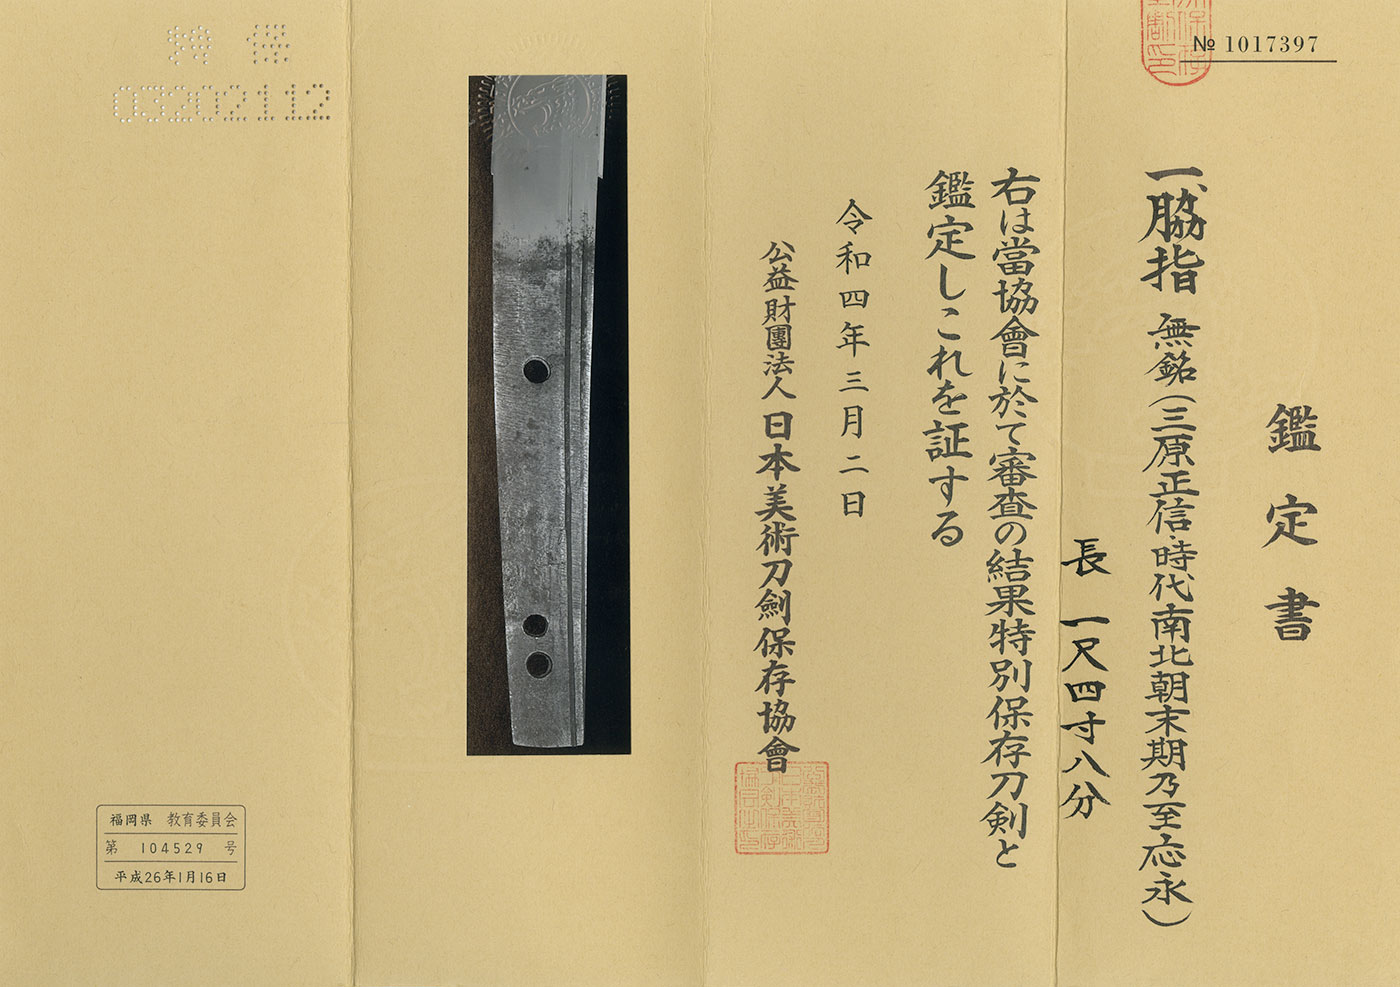 № 1017397
鑑定書
一、脇指 無銘(三原正信・時代南北朝末期乃至応永)
長 一尺四寸八分
右は當協會に於て審査の結果特別保存刀剣と
鑑定しこれを証する
令和四年三月二日
公益財團法人 日本美術刀劍保存協會
03202112
福岡県 教育委員会
第 104529 号
平成26年1月16日